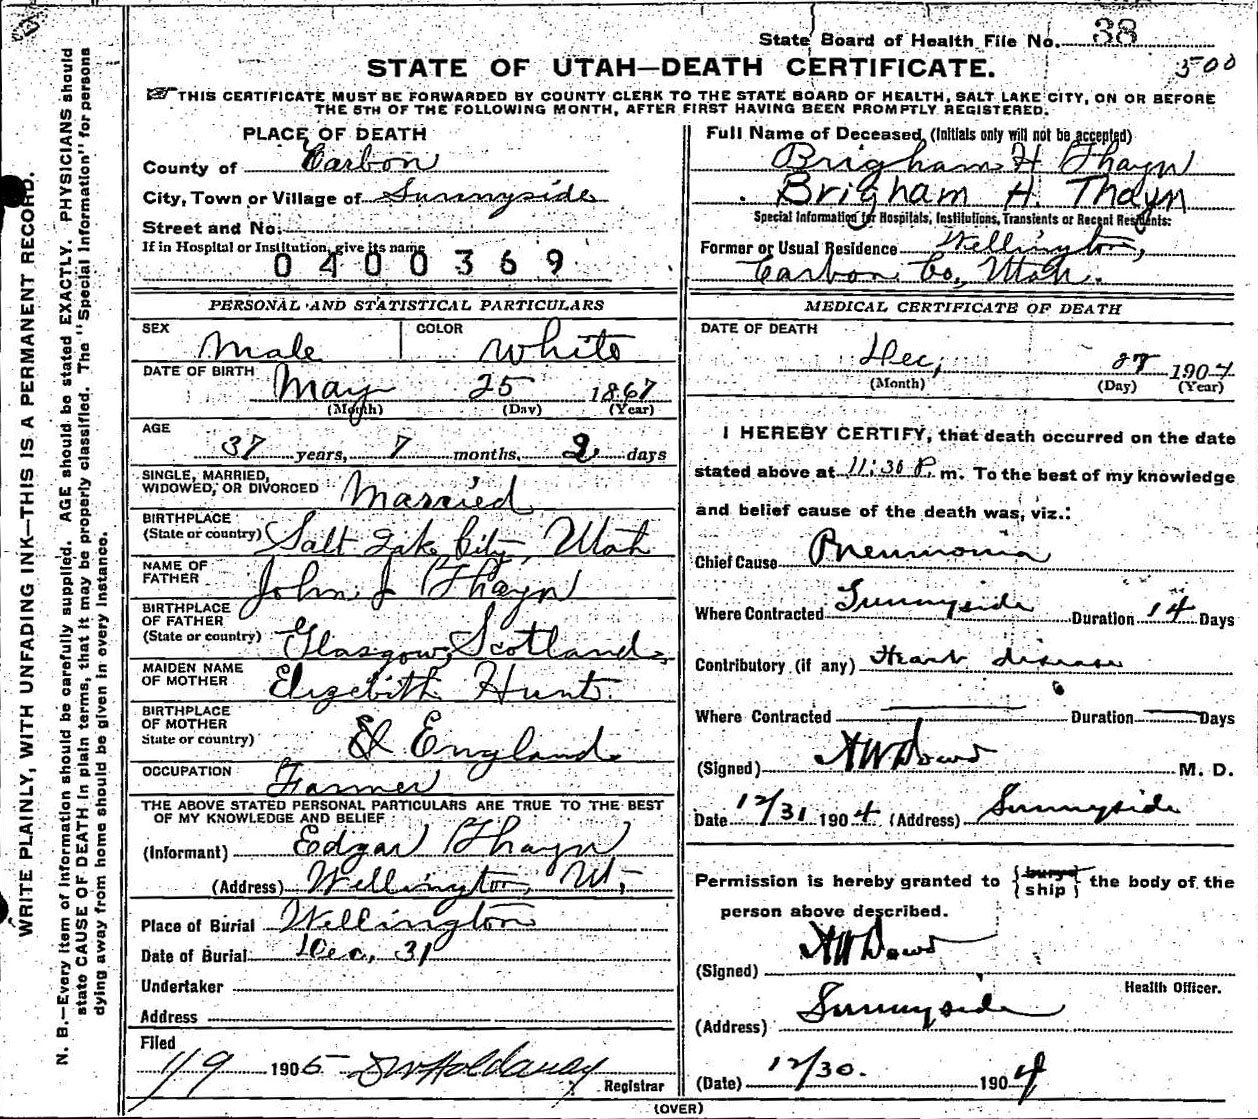 State Board of Health File No. 38
500
STATE OF UTAH—DEATH CERTIFICATE.
THIS CERTIFICATE MUST BE FORWARDED BY COUNTY CLERK TO THE STATE BOARD OF HEALTH, SALT LAKE CITY, ON OR BEFORE
THE 5TH OF THE FOLLOWING MONTH, AFTER FIRST HAVING BEEN PROMPTLY REGISTERED.
WRITE PLAINLY, WITH UNFADING INK—THIS IS A PERMANENT RECORD.
N. B.—Every item of information should be carefully supplied. AGE should be stated EXACTLY. PHYSICIANS should
state CAUSE OF DEATH in plain terms, that it may be properly classified. The "Special Information" for persons
dying away from home should be given in every instance.
PLACE OF DEATH
County of Carbon
City, Town or Village of Sunnyside
Street and No.
If in Hospital or Institution, give its name
0400369
PERSONAL AND STATISTICAL PARTICULARS
SEX Male COLOR White
DATE OF BIRTH May 25 1867
(Month) (Day) (Year)
AGE 37 years, 7 months, 2 days
SINGLE, MARRIED,
WIDOWED, OR DIVORCED Married
BIRTHPLACE
(State or country) Salt Lake City, Utah
NAME OF
FATHER John J Thayn
BIRTHPLACE
OF FATHER
(State or country) Glasgow, Scotland
MAIDEN NAME
OF MOTHER Elizebith Hunt.
BIRTHPLACE
OF MOTHER
State or country) England
OCCUPATION Farmer
THE ABOVE STATED PERSONAL PARTICULARS ARE TRUE TO THE BEST
OF MY KNOWLEDGE AND BELIEF
(Informant) Edgar Thayn
(Address) Wellington, Ut,
Place of Burial Wellington
Date of Burial Dec, 31
Undertaker
Address
Filed
1/9 1905 SW Holdaway
Registrar
Full Name of Deceased, (Initials only will not be accepted)
Brigham H Thayn
Brigham H. Thayn
Special Information for Hospitals, Institutions, Transients or Recent Residents:
Former or Usual Residence Wellington,
Carbon Co, Utah.
MEDICAL CERTIFICATE OF DEATH
DATE OF DEATH
Dec, 27 1904
(Month) (Day) (Year)
I HEREBY CERTIFY, that death occurred on the date
stated above at 11:30 P. m. To the best of my knowledge
and belief cause of the death was, viz.:
Chief Cause Pneumonia
Where Contracted Sunnyside Duration 14 Days
Contributory (if any) Heart disease
Where Contracted Duration Days
(Signed) AW Dowd M. D.
Date 12/31 1904 (Address) Sunnyside
Permission is hereby granted to {bury ship} the body of the
person above described.
(Signed) AW Dowd
Health Officer.
(Address) Sunnyside
(Date) 12/30. 1904
(OVER)